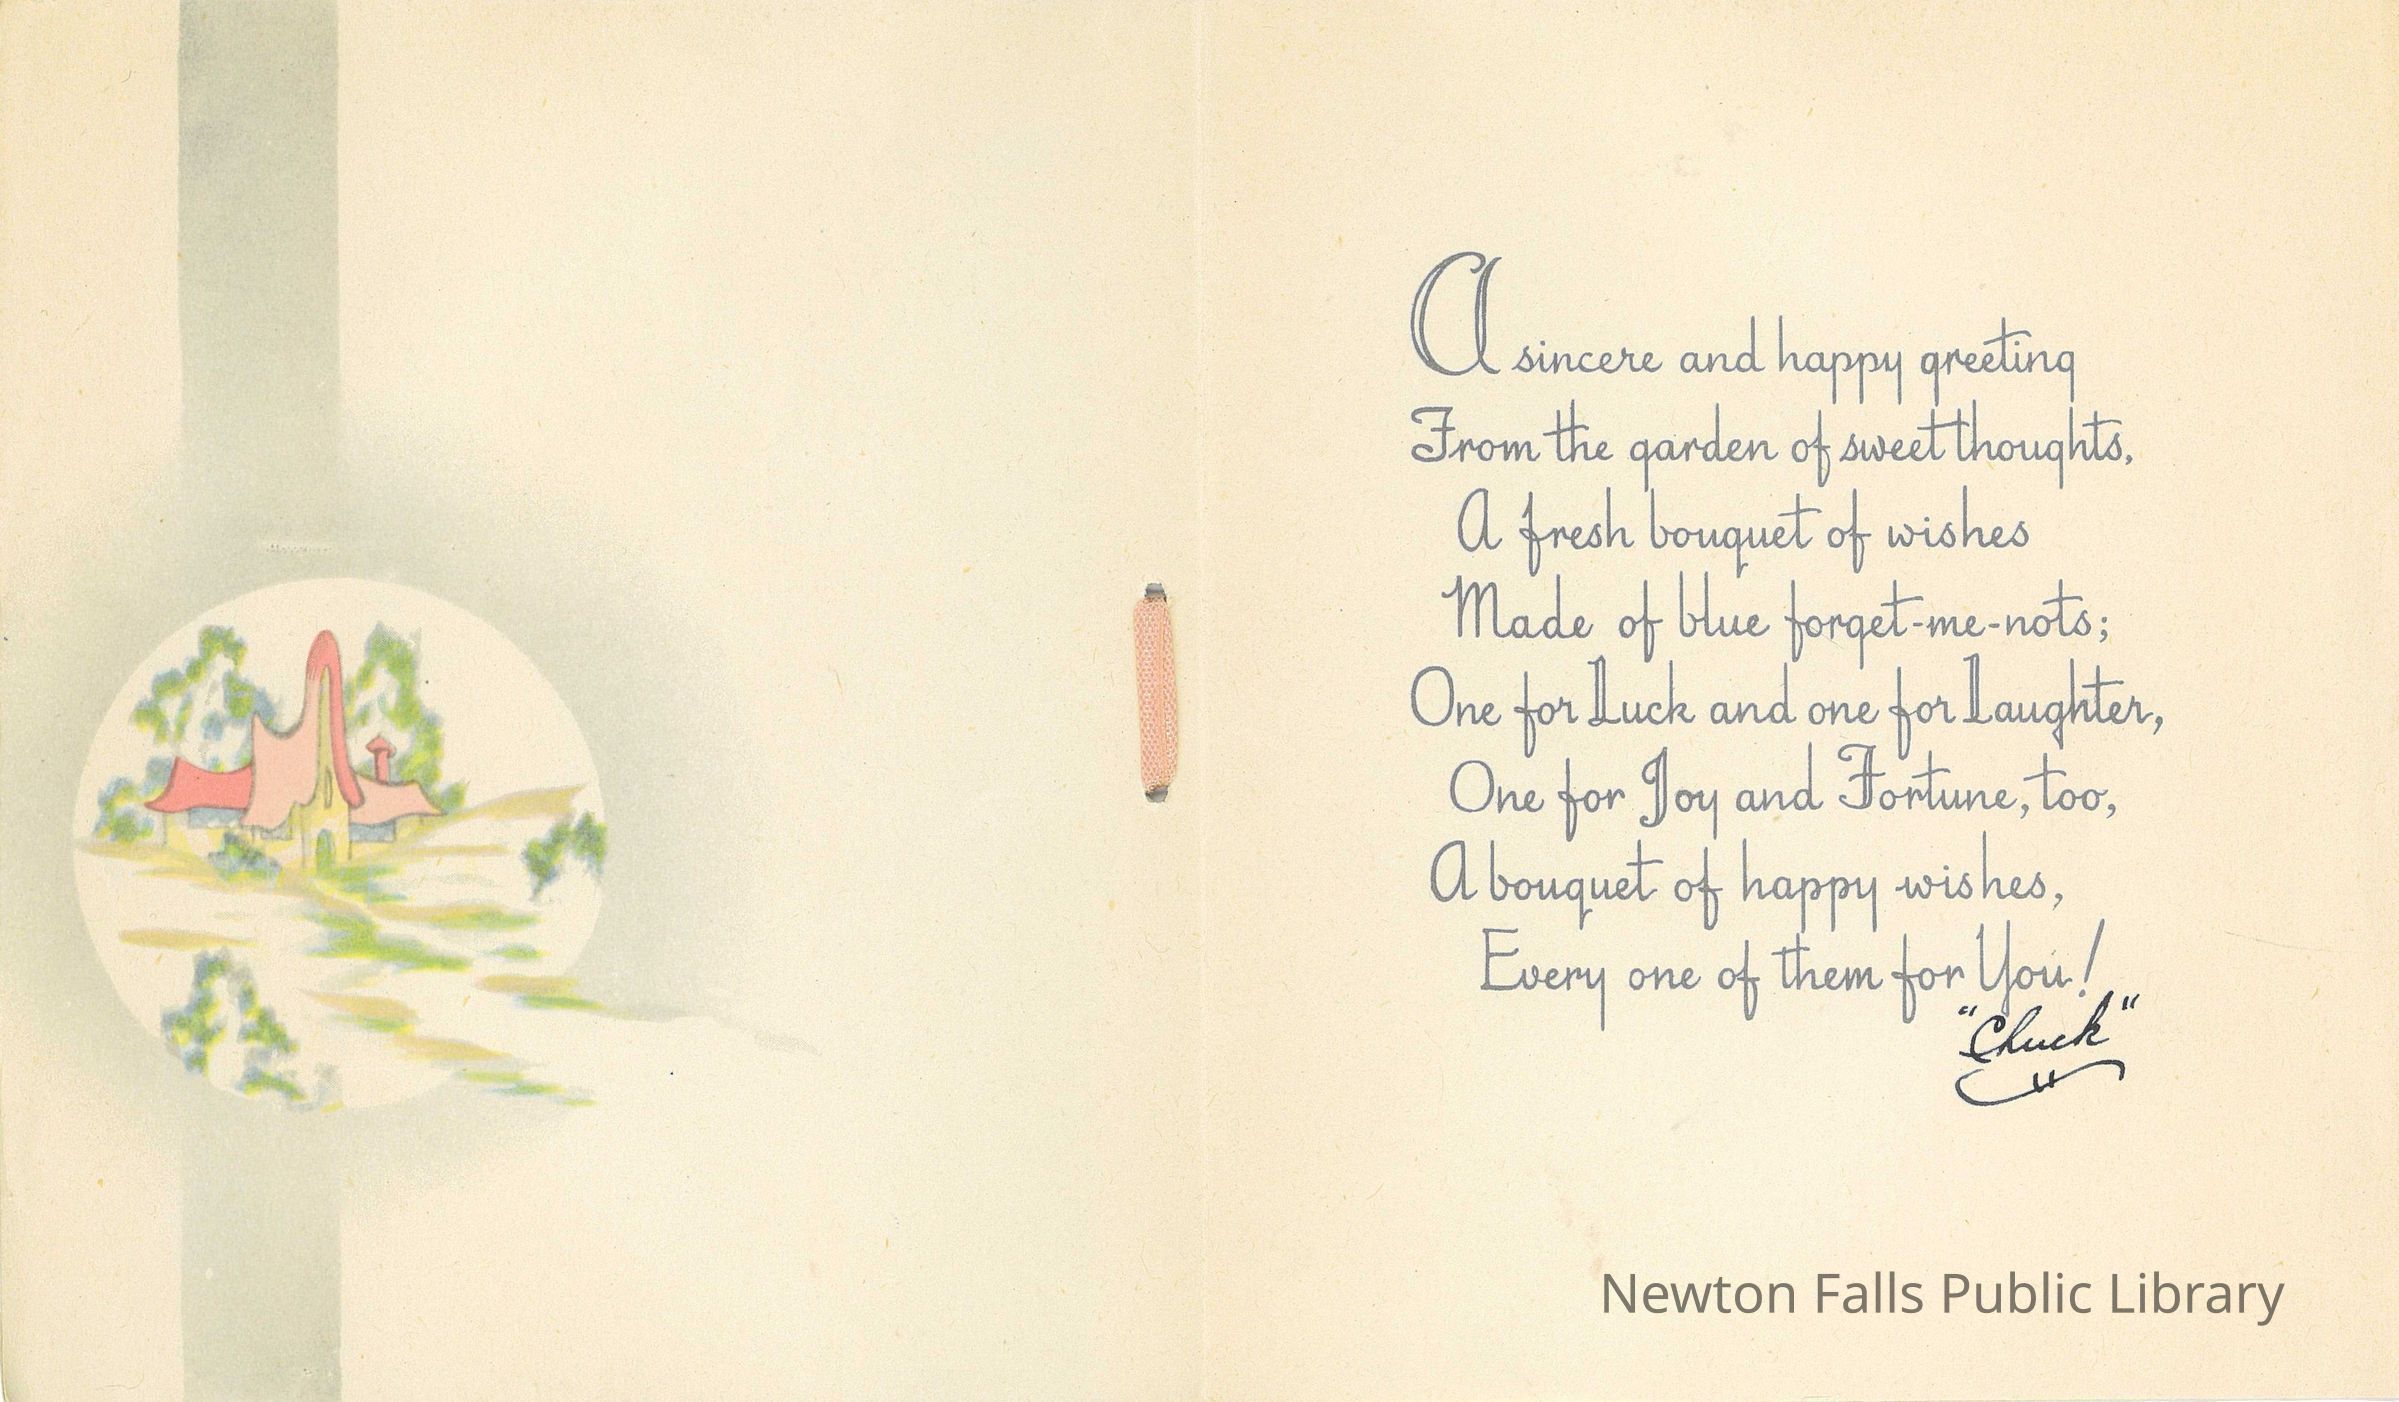 A sincere and happy greeting
From the garden of sweet thoughts,
A fresh bouquet of wishes
Made of blue forget-me-nots;
One for Luck and one for Laughter,
One for Joy and Fortune, too,
A bouquet of happy wishes,
Every one of them for You!
"Chuck"
Newton Falls Public Library